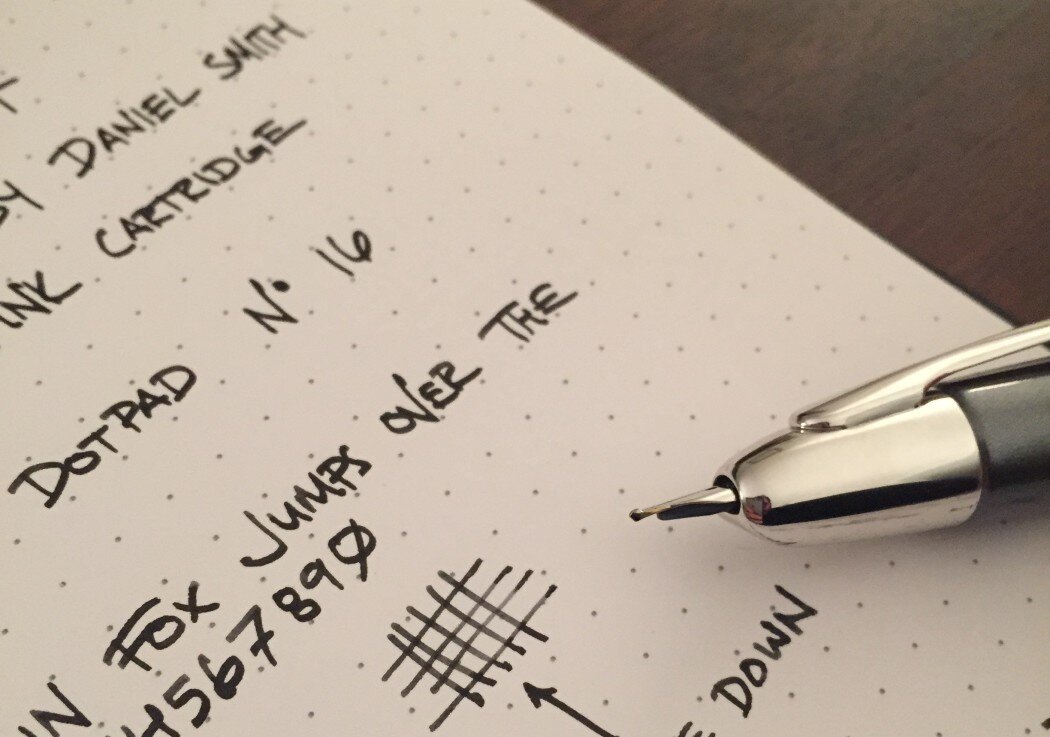 BY DANIEL SMITH
INK CARTRIDGE
DOTPAD Nº 16
FOX JUMPS OVER THE
4567890
DOWN